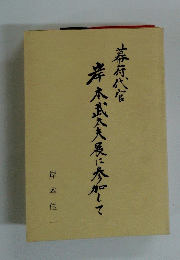 幕府代官
岸本武太夫展に参加して
岸本